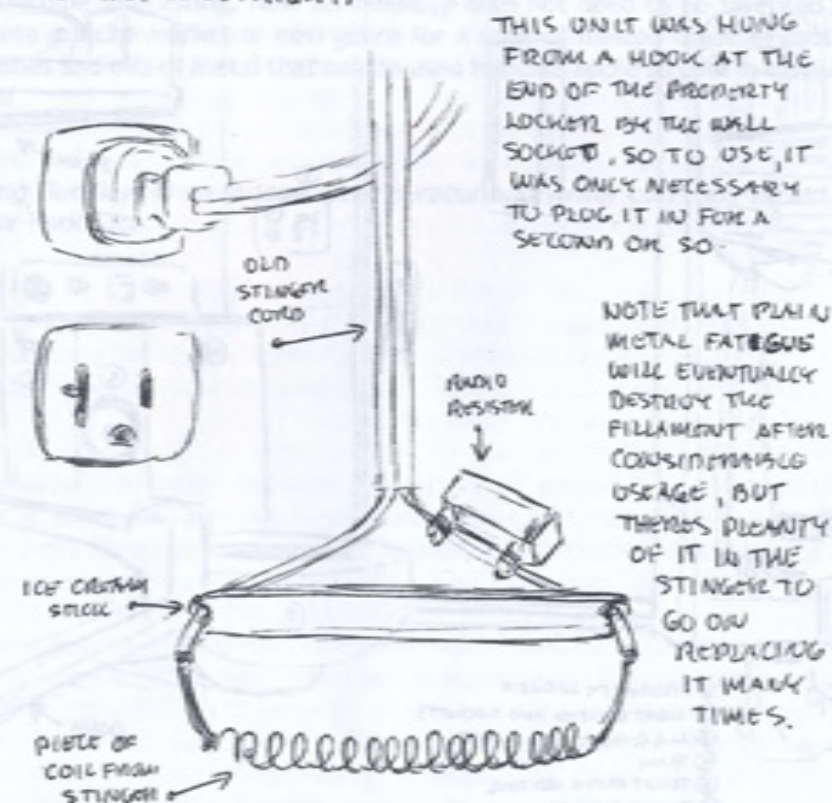 THIS UNIT WAS HUNG
FROM A HOOK AT THE
END OF THE PROPERTY
LOCKER BY THE WALL
SOCKET, SO TO USE, IT
WAS ONLY NECESSARY
TO PLUG IT IN FOR A
SECOND OR SO.
OLD
STINGER
CORD
NOTE THAT PLAIN
METAL FATIGUE
WILL EVENTUALLY
DESTROY THE
FILLAMENT AFTER
CONSIDERABLE
USEAGE, BUT
THERES PLEANTY
OF IT IN THE
STINGER TO
GO ON
REPLACING
IT MANY
TIMES.
RADIO
RESISTER
ICE CREAM
STICK
PIECE OF
COIL FROM
STINGER